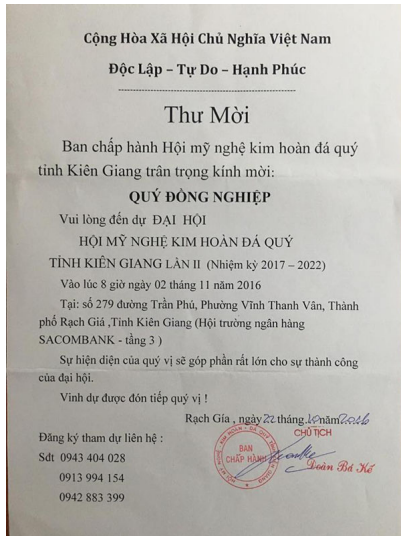 Cộng Hòa Xã Hội Chủ Nghĩa Việt Nam
Độc Lập – Tự Do – Hạnh Phúc
Thư Mời
Ban chấp hành Hội mỹ nghệ kim hoàn đá quý
tỉnh Kiên Giang trân trọng kính mời:
QUÝ ĐỒNG NGHIỆP
Vui lòng đến dự ĐẠI HỘI
HỘI MỸ NGHỆ KIM HOÀN ĐÁ QUÝ
TỈNH KIÊN GIANG LẦN II (Nhiệm kỳ 2017 – 2022)
Vào lúc 8 giờ ngày 02 tháng 11 năm 2016
Tại: số 279 đường Trần Phú, Phường Vĩnh Thanh Vân, Thành
phố Rạch Giá ,Tỉnh Kiên Giang (Hội trường ngân hàng
SACOMBANK - tầng 3 )
Sự hiện diện của quý vị sẽ góp phần rất lớn cho sự thành công
của đại hội.
Vinh dự được đón tiếp quý vị !
Rạch Gía , ngày 22 tháng 10 năm 2016
CHỦ TỊCH
Đăng ký tham dự liên hệ :
Sdt 0943 404 028
0913 994 154
0942 883 399
BAN
CHẤP HÀNH
Đoàn Bá Kế